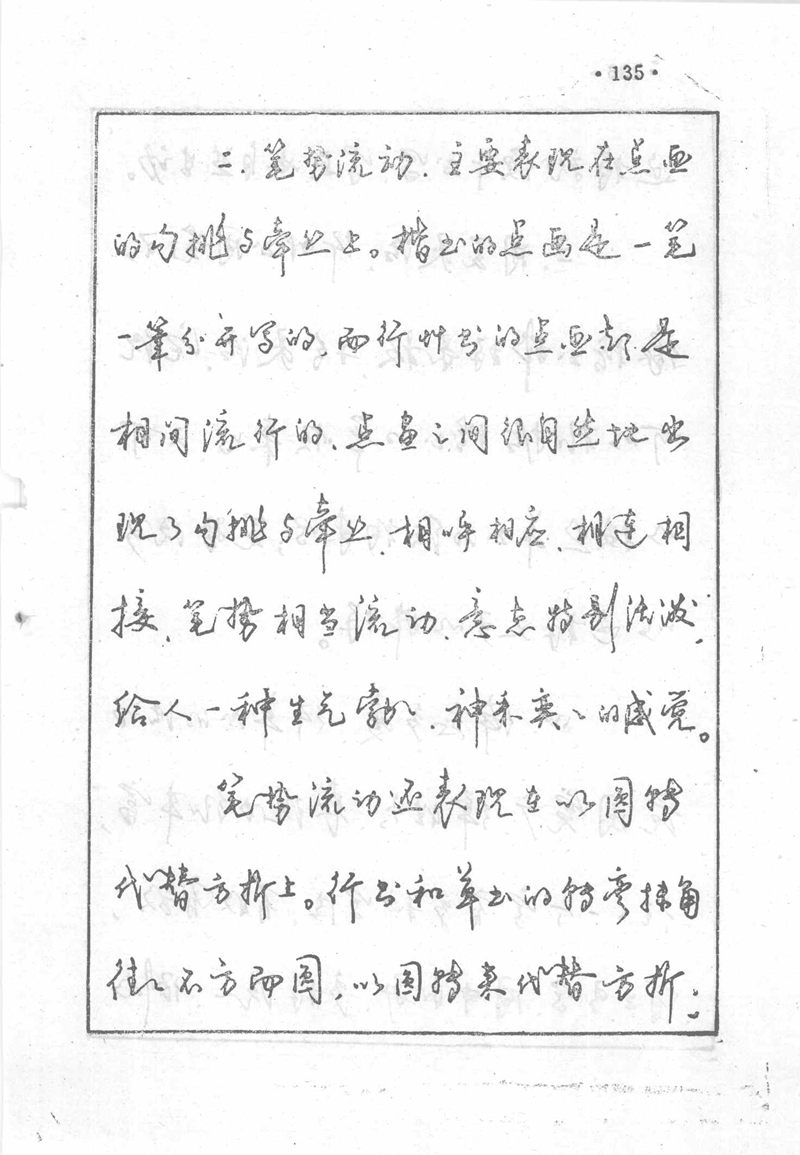 ·135·
二、笔势流动，主要表现在点画
的勾挑与牵丝上。楷书的点画是一笔
一笔分开写的，而行草书的点画都是
相间流行的，点画之间很自然地出
现了勾挑与牵丝，相呼相应，相连相
接，笔势相当流动，意态特别活泼，
给人一种生气勃勃、神采奕奕的感觉。
笔势流动还表现在以圆转
代替方折上。行书和草书的转弯抹角
往往不方而圆，以圆转来代替方折；